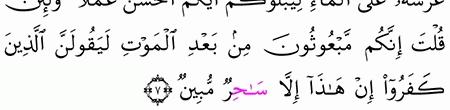 عَرْشُهُ عَلَى الْمَاءِ لِيَبْلُوَكُمْ أَيُّكُمْ أَحْسَنُ عَمَلًا وَلَئِن
قُلْتَ إِنَّكُم مَّبْعُوثُونَ مِنۢ بَعْدِ الْمَوْتِ لَيَقُولَنَّ الَّذِينَ
كَفَرُوٓا۟ إِنْ هَـٰذَآ إِلَّا سَـٰحِرٌ مُّبِينٌ ٧